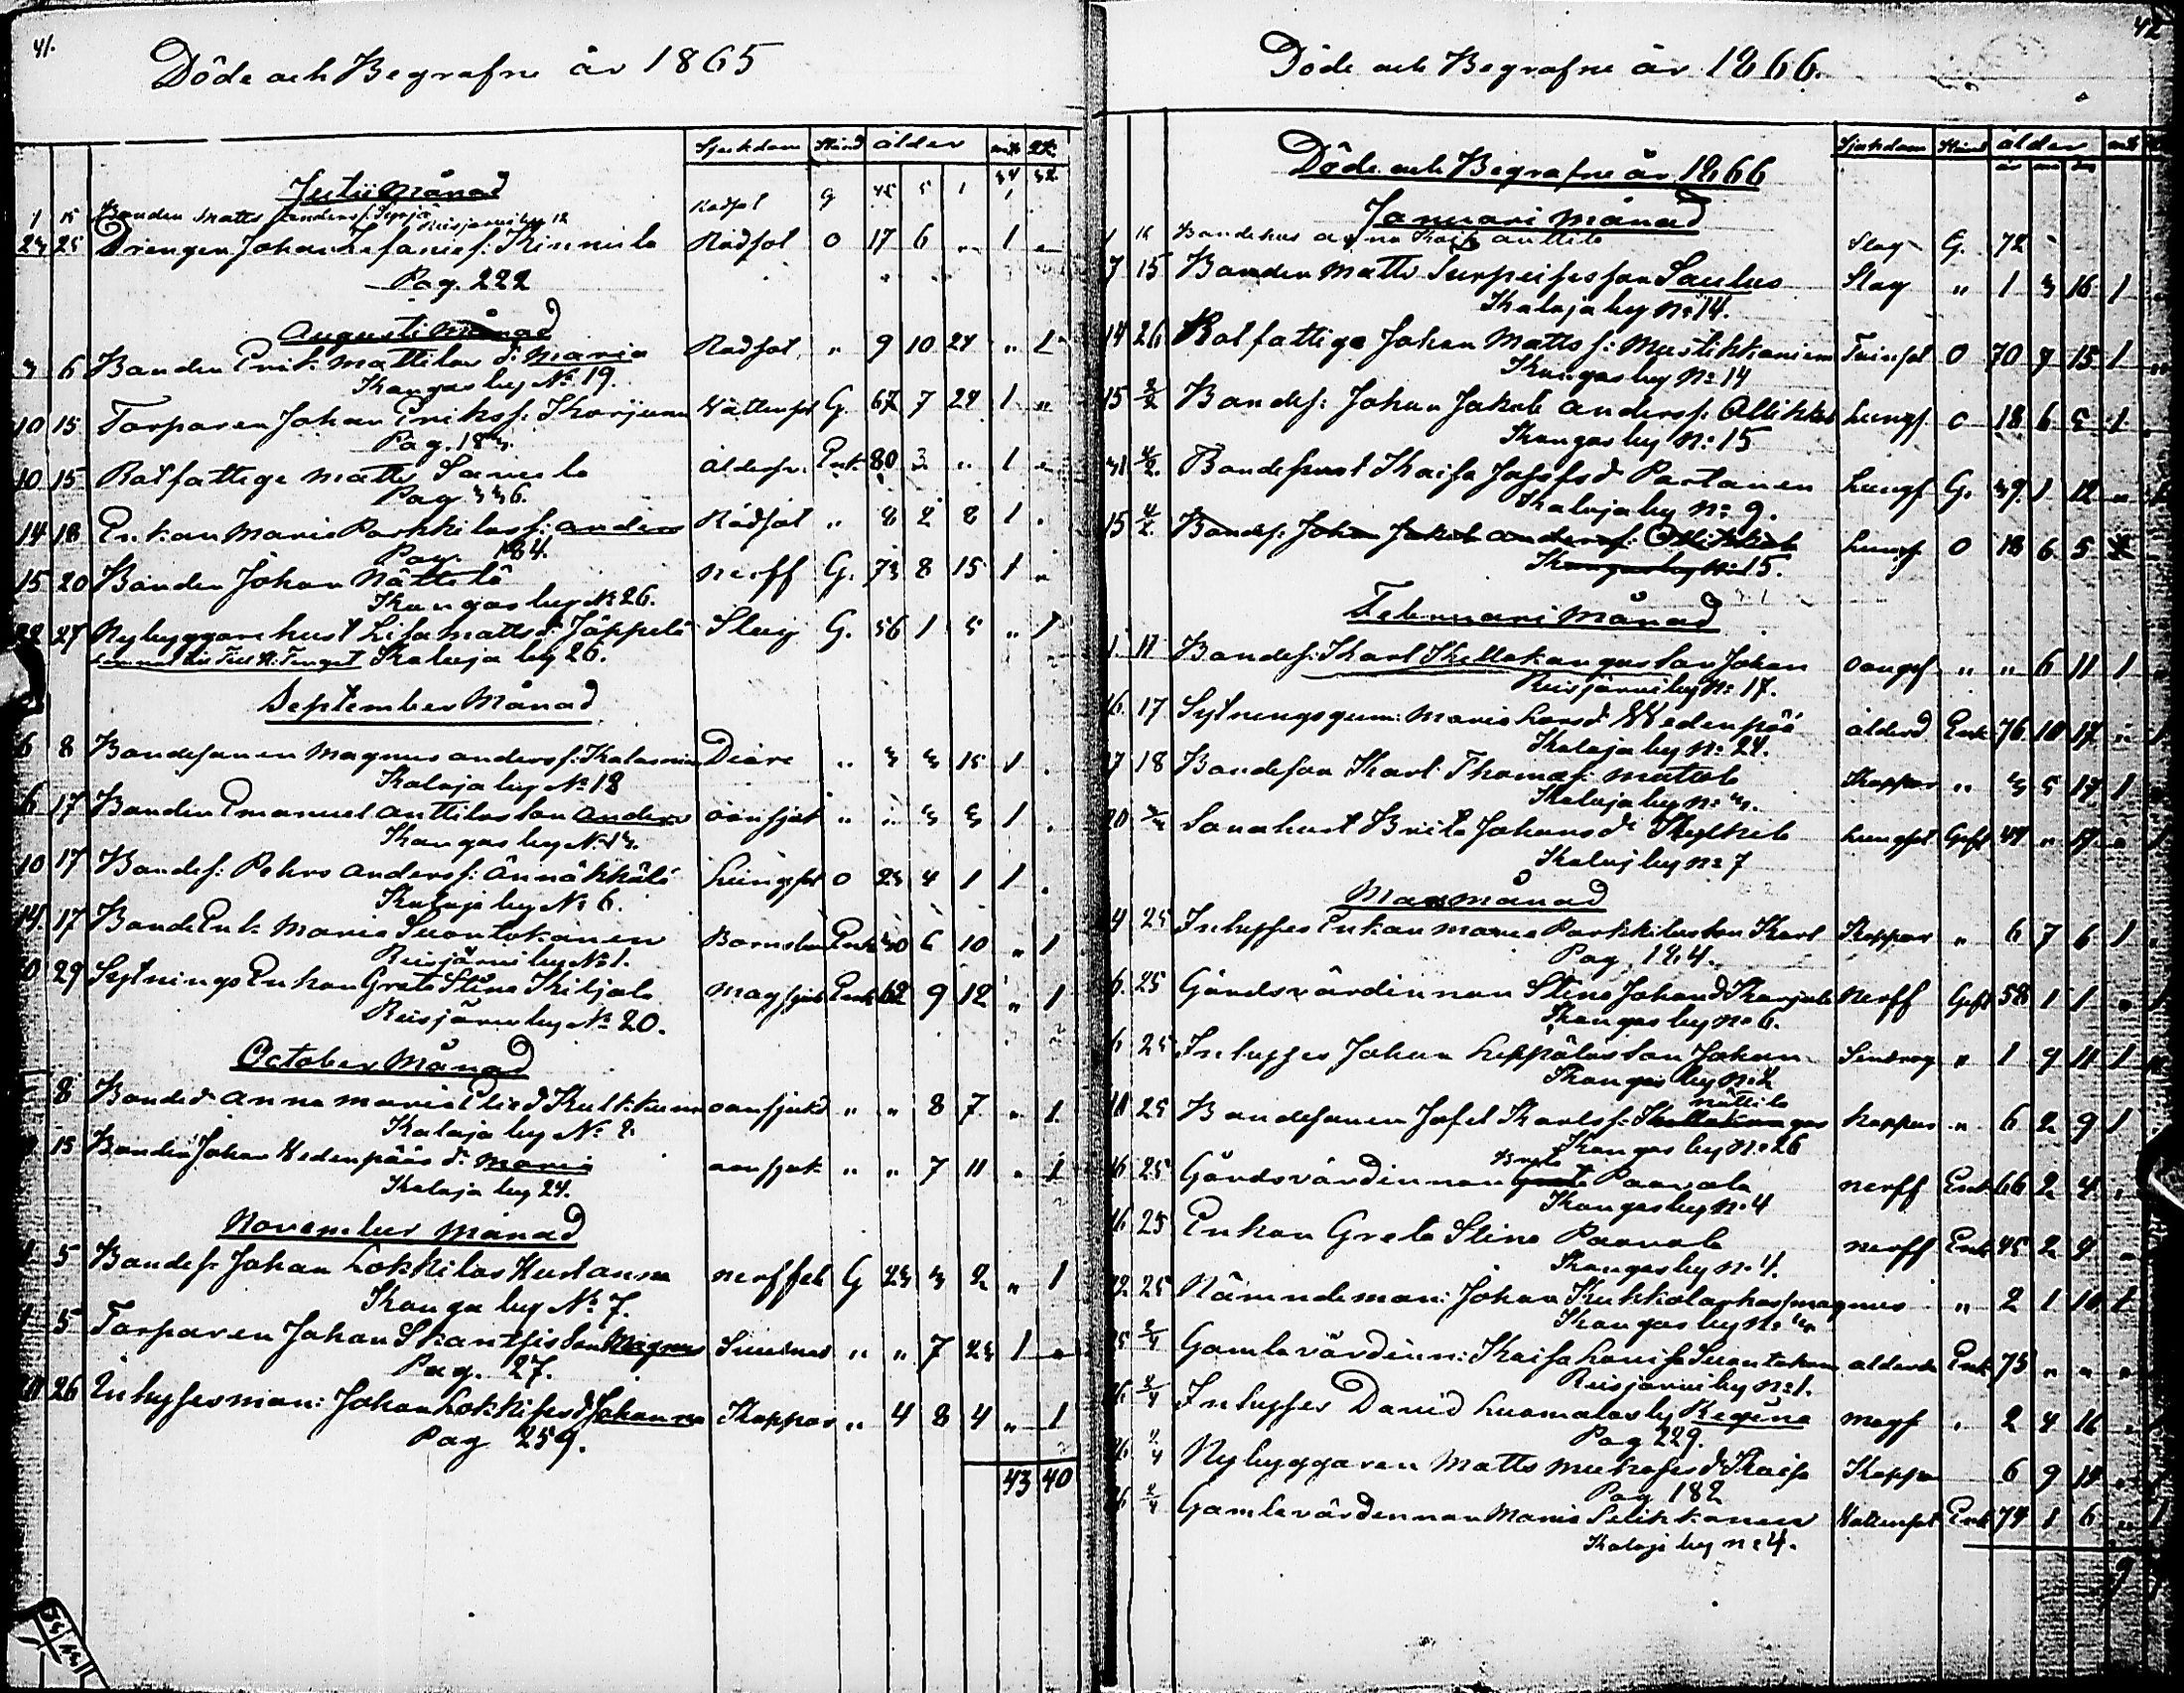 41.
Döde och Begrafne år 1865
Sjukdom Stånd ålder mk qk
34 38
Julii Månad
1 15 Bonden Matts Anders s. Reisjärvi by 12 Rödsot g 45 5 1 1
23 25 Drengen Johan Kinnula Rödsot O 17 6 „ 1 „
Pag. 222
Augusti Månad
3 6 Bonden Erik Mattilas d. Maria Rödsot „ 9 10 24 „ 1
Kangas by No. 19.
10 15 Torparen Johan Eriks s. Korjunen Vattensot G. 67 7 24 1 „
Pag. 183.
10 15 Rotfattige Matts Saviula ålders. Enk. 80 3 „ 1 „
Pag 336.
14 18 Enkan Maria Parkkilas s: Anders Rödsot „ 8 2 8 1 „
Pag. 184.
15 20 Bonden Johan Nättilä nerff G. 73 8 15 1 „
Kangas by No 26.
22 27 Nybyggare hust Lisa Matts d. Jäppelä Slag G. 56 1 5 „ 1
Kalaja by 26.
September Månad
6 8 Bondesonen Magnus Anders s. Diare „ 3 3 15 1 „
Kalaja by No 18
6. 17 Bonden Emanuel Anttilas son Anders oansjuk „ „ 3 3 1 „
Kangas by No. 13.
10 17 Bondes: Pehrs Anders s: Ännäkkälä Lungsot O 23 4 1 1 „
Kalaja by No 6.
14. 17 BondeEnk. Maria Suontokanen Barnsbu Enk 40 6 10 „ 1
Reisjärvi by No 1.
29 Sytnings Enkan Greta Stina Kiljala Magsjuk Enk 62 9 12 „ 1
Reisjärvi by No 20.
October Månad
8 Bonded. Anna Maria Elied Kukkunen oansjukd „ „ 8 7 „ 1
Kalaja by No. 2
15 Bonden Johan Vedenpääs d. Maria oansjuk „ „ 7 11 „ 1
Kalaja by 24.
November Månad
1 5 Bondes. Johan Lokkilas Hust anna nerffeb G 23 3 2 „ 1
Kanga by No 7.
1 5 Torparen Johan Skantsis Son Magnus „ „ 7 23 1 „
Pag. 27.
11 26 Inhysesman: Johan Lokkises d Johanna Koppor „ 4 8 4 „ 1
Pag 259.
43 40
42
Döde och Begrafne år 1866.
Sjukdom Stånd ålder mk
år mn dag
Döde och Begrafne år 1866
Januari Månad
Bondehus Anna Kaisa Anttila Slag G. 72
7 15 Bonden Matts Turpeises son Saulus Slag „ 1 3 16 1 „
Kalaja by No 14.
14 26 Rotfattige Johan Matts s: Mustikkaniemi Tvinsot O 70 7 15 1 „
Kangas by No 14
15 2/2 Bondes: Johan Jakob Anders s. Ollikkala Lungs O 18 6 5 1 „
Kangas by No: 15
31 4/2. Bondehust Kaisa Josefs d Partanen Lungs G. 39 1 12 „ 1
Kalaja by No 9.
15 4/2. Bondes. Johan Jakob Anders s: Ollikkala Lungs O 18 6 5 1
Kangas by No 15.
Februari Månad
1. 11 Bondes: Karl Kellokangas Son Johan oangs „ „ 6 11 1 „
Reisjärvi by No 17.
16. 17 Sytningsgum: Maria Lars d Wedenpää ålderd Enk 76 10 17 „ 1
Kalaja by No 24.
17 18 Bondeson Karl Thomas s. Matala Koppor „ 3 5 17 1 „
Kalaja by No 3.
20 Sonahust Brita Johans d: Kylkelä Lungsot Gift 47 „ 17 „ 1
Kalaj by No 7
Mars månad
4 25 Inhyses Enkan Maria Parkkilas son Karl Koppor „ 6 7 6 1 „
Pag. 184.
6. 25 Gårdsvärdinnan Stina Johans d Karjala Nerff Gift 58 1 1 „ 1
Kangas by No 6.
6 25 Inhyses Johan Leppälas son Johan „ 1 9 11 1 „
Kangas by No 2
nättilä
10 25 Bondesonen Josef Karls s: Kellokangas koppor „ 6 2 9 1
Kangas by No 26
Brita
16 25 Gårdsvärdinnan Greta Paavola nerff Enk 66 2 4 „
Kangas by No. 4
16. 25 Enkan Greta Stina Paavola nerff Enk 45 2 9 „
Kangas by No. 4.
22 25 Nämndeman: Johan Kukkola Magnus „ 2 1 10 1
Kangas by No
25 2/4 Gamla värdinn: Kaisa Lovisa Suontokan alderd Enk 75 „ „ „
Reisjärvi by No 1.
26. 2/4 Inhyses David Luomalas by Regina mags „ 2 4 16 „
Pag 229.
26. 2/4 Nybyggaren Matts d: Kaisa Koppor 6 9 14 „
Pag 182
26 2/4 Gamlevärdinnan Maria Pelikkanen Vattensot Enk 74 1 6 „
Kalaja by No 4.
9